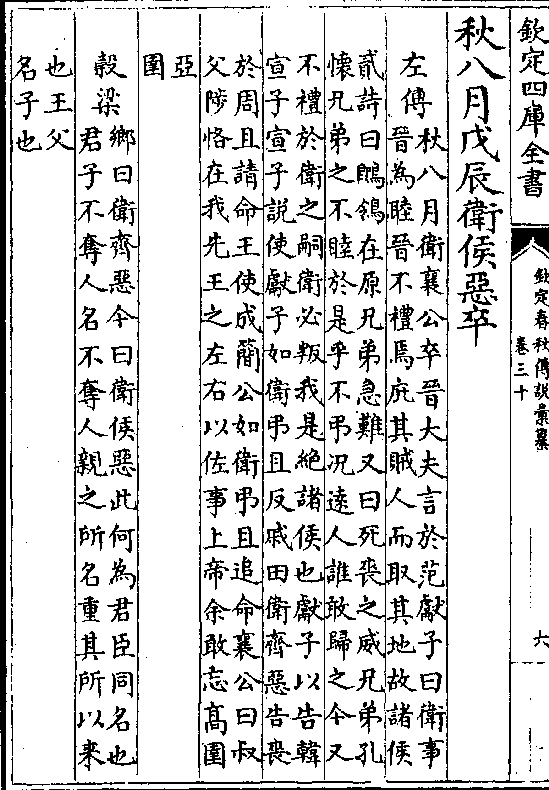 欽定四庫全書
欽定春秋傳說彙纂
卷三十
六
秋八月戊辰衛侯惡卒
左傳
秋八月衛襄公卒晉大夫言於范獻子曰衛事
晉為睦晉不禮焉庇其賊人而取其地故諸侯
貳詩曰鶺鴒在原兄弟急難又曰死喪之威兄弟孔
懷兄弟之不睦於是乎不弔况遠人誰敢歸之今又
不禮於衛之嗣衛必叛我是絕諸侯也獻子以告韓
宣子宣子說使獻子如衛弔且反戚田衛齊惡告喪
於周且請命王使成簡公如衛弔且追命襄公曰叔
父陟恪在我先王之左右以佐事上帝余敢忘高圉
亞
圉
穀梁
鄉曰衛齊惡今曰衛侯惡此何為君臣同名也
君子不奪人名不奪人親之所名重其所以来
也王父
名子也